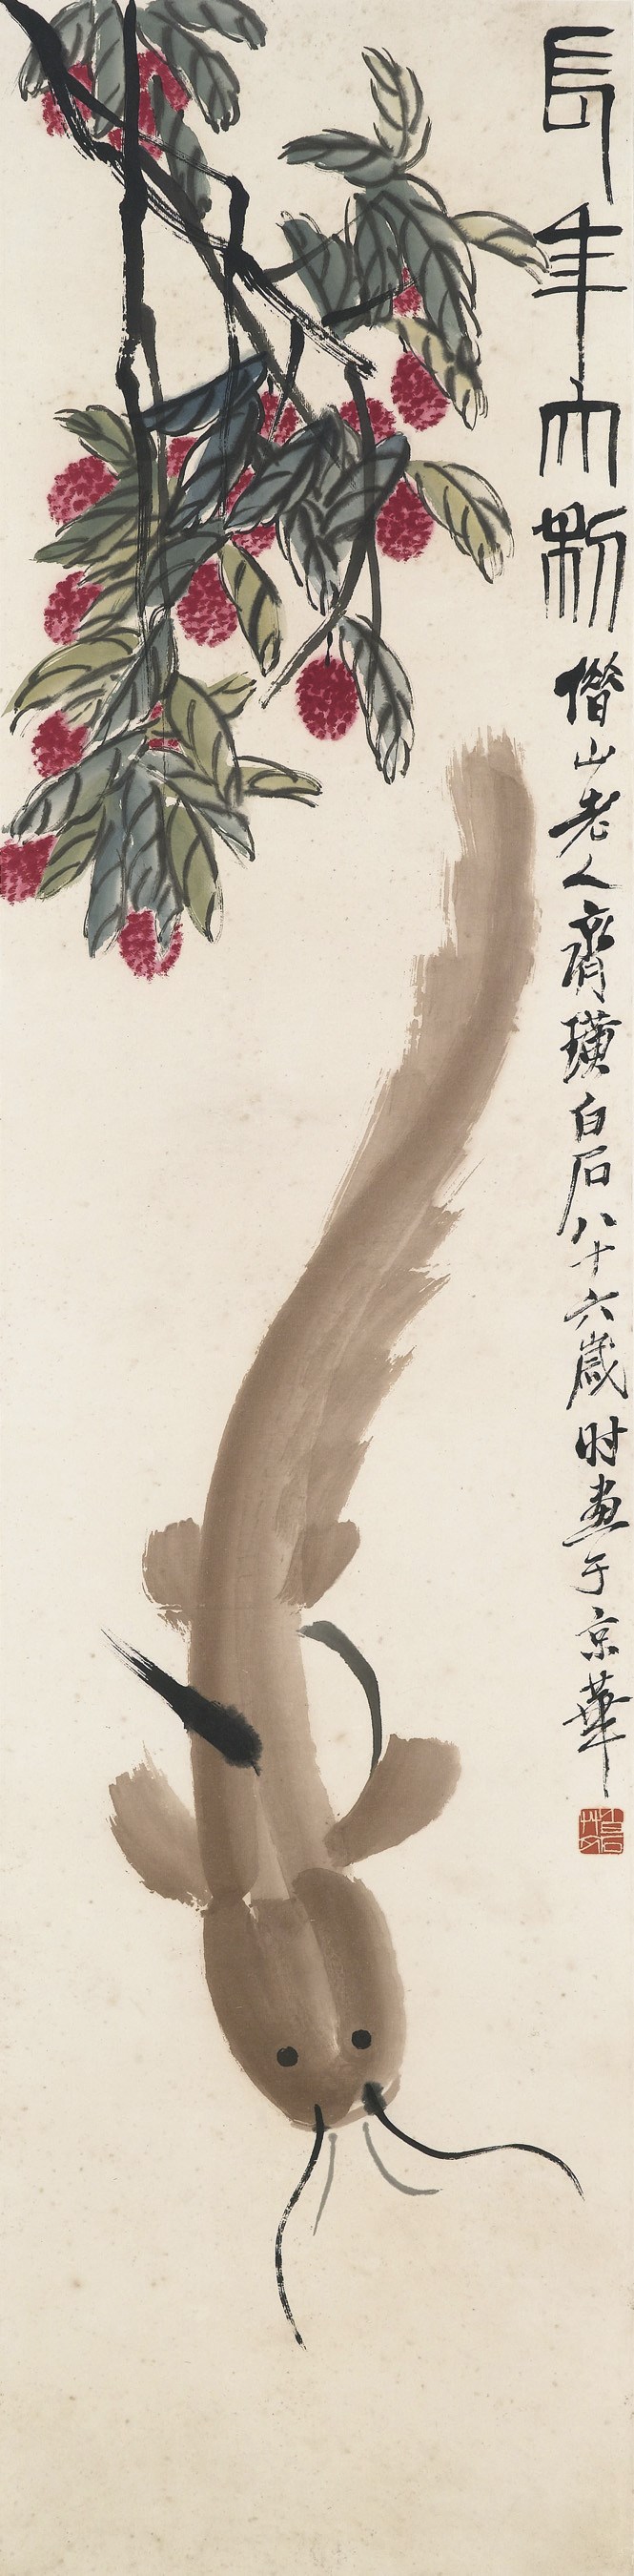 長年大利
借山老人齊璜白石八十六歲时畫于京華